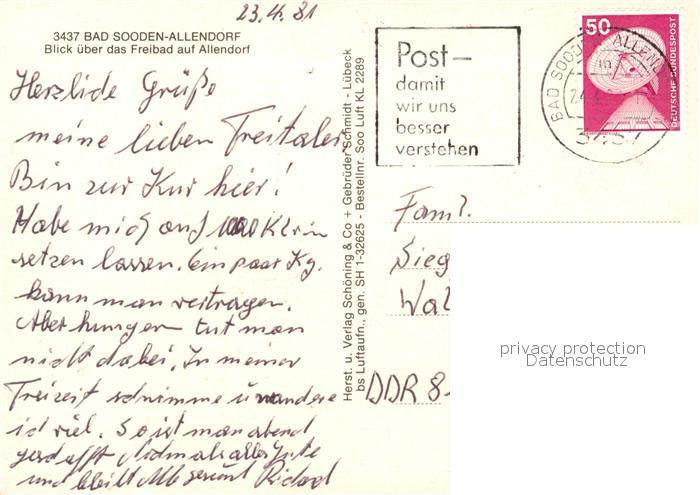 23.4.81
3437 BAD SOODEN-ALLENDORF
Blick über das Freibad auf Allendorf
Herzliche Grüße
meine lieben Freitaler
Bin zur Kur hier!
Habe mich auf 1000 Klrin
setzen lassen. Ein paar Kg.
kann man vertragen.
Aber hungern tut man
nicht dabei. In meiner
Freizeit schwimme u wandere
ich viel. So ist man abend
geschafft Nochmals alles Gute
und bleibt Alle gesund Richard
Herst. u. Verlag Schöning & Co + Gebrüder Schmidt - Lübeck
bs Luftaufn., gen. SH 1-32625 - Bestellnr. Soo Luft KL 2289
Post-
damit
wir uns
besser
verstehen
50
DEUTSCHE BUNDESPOST
BAD SOODEN-ALLEND
3437
Faml.
Sieg
Wal
DDR 8
privacy protection
Datenschutz